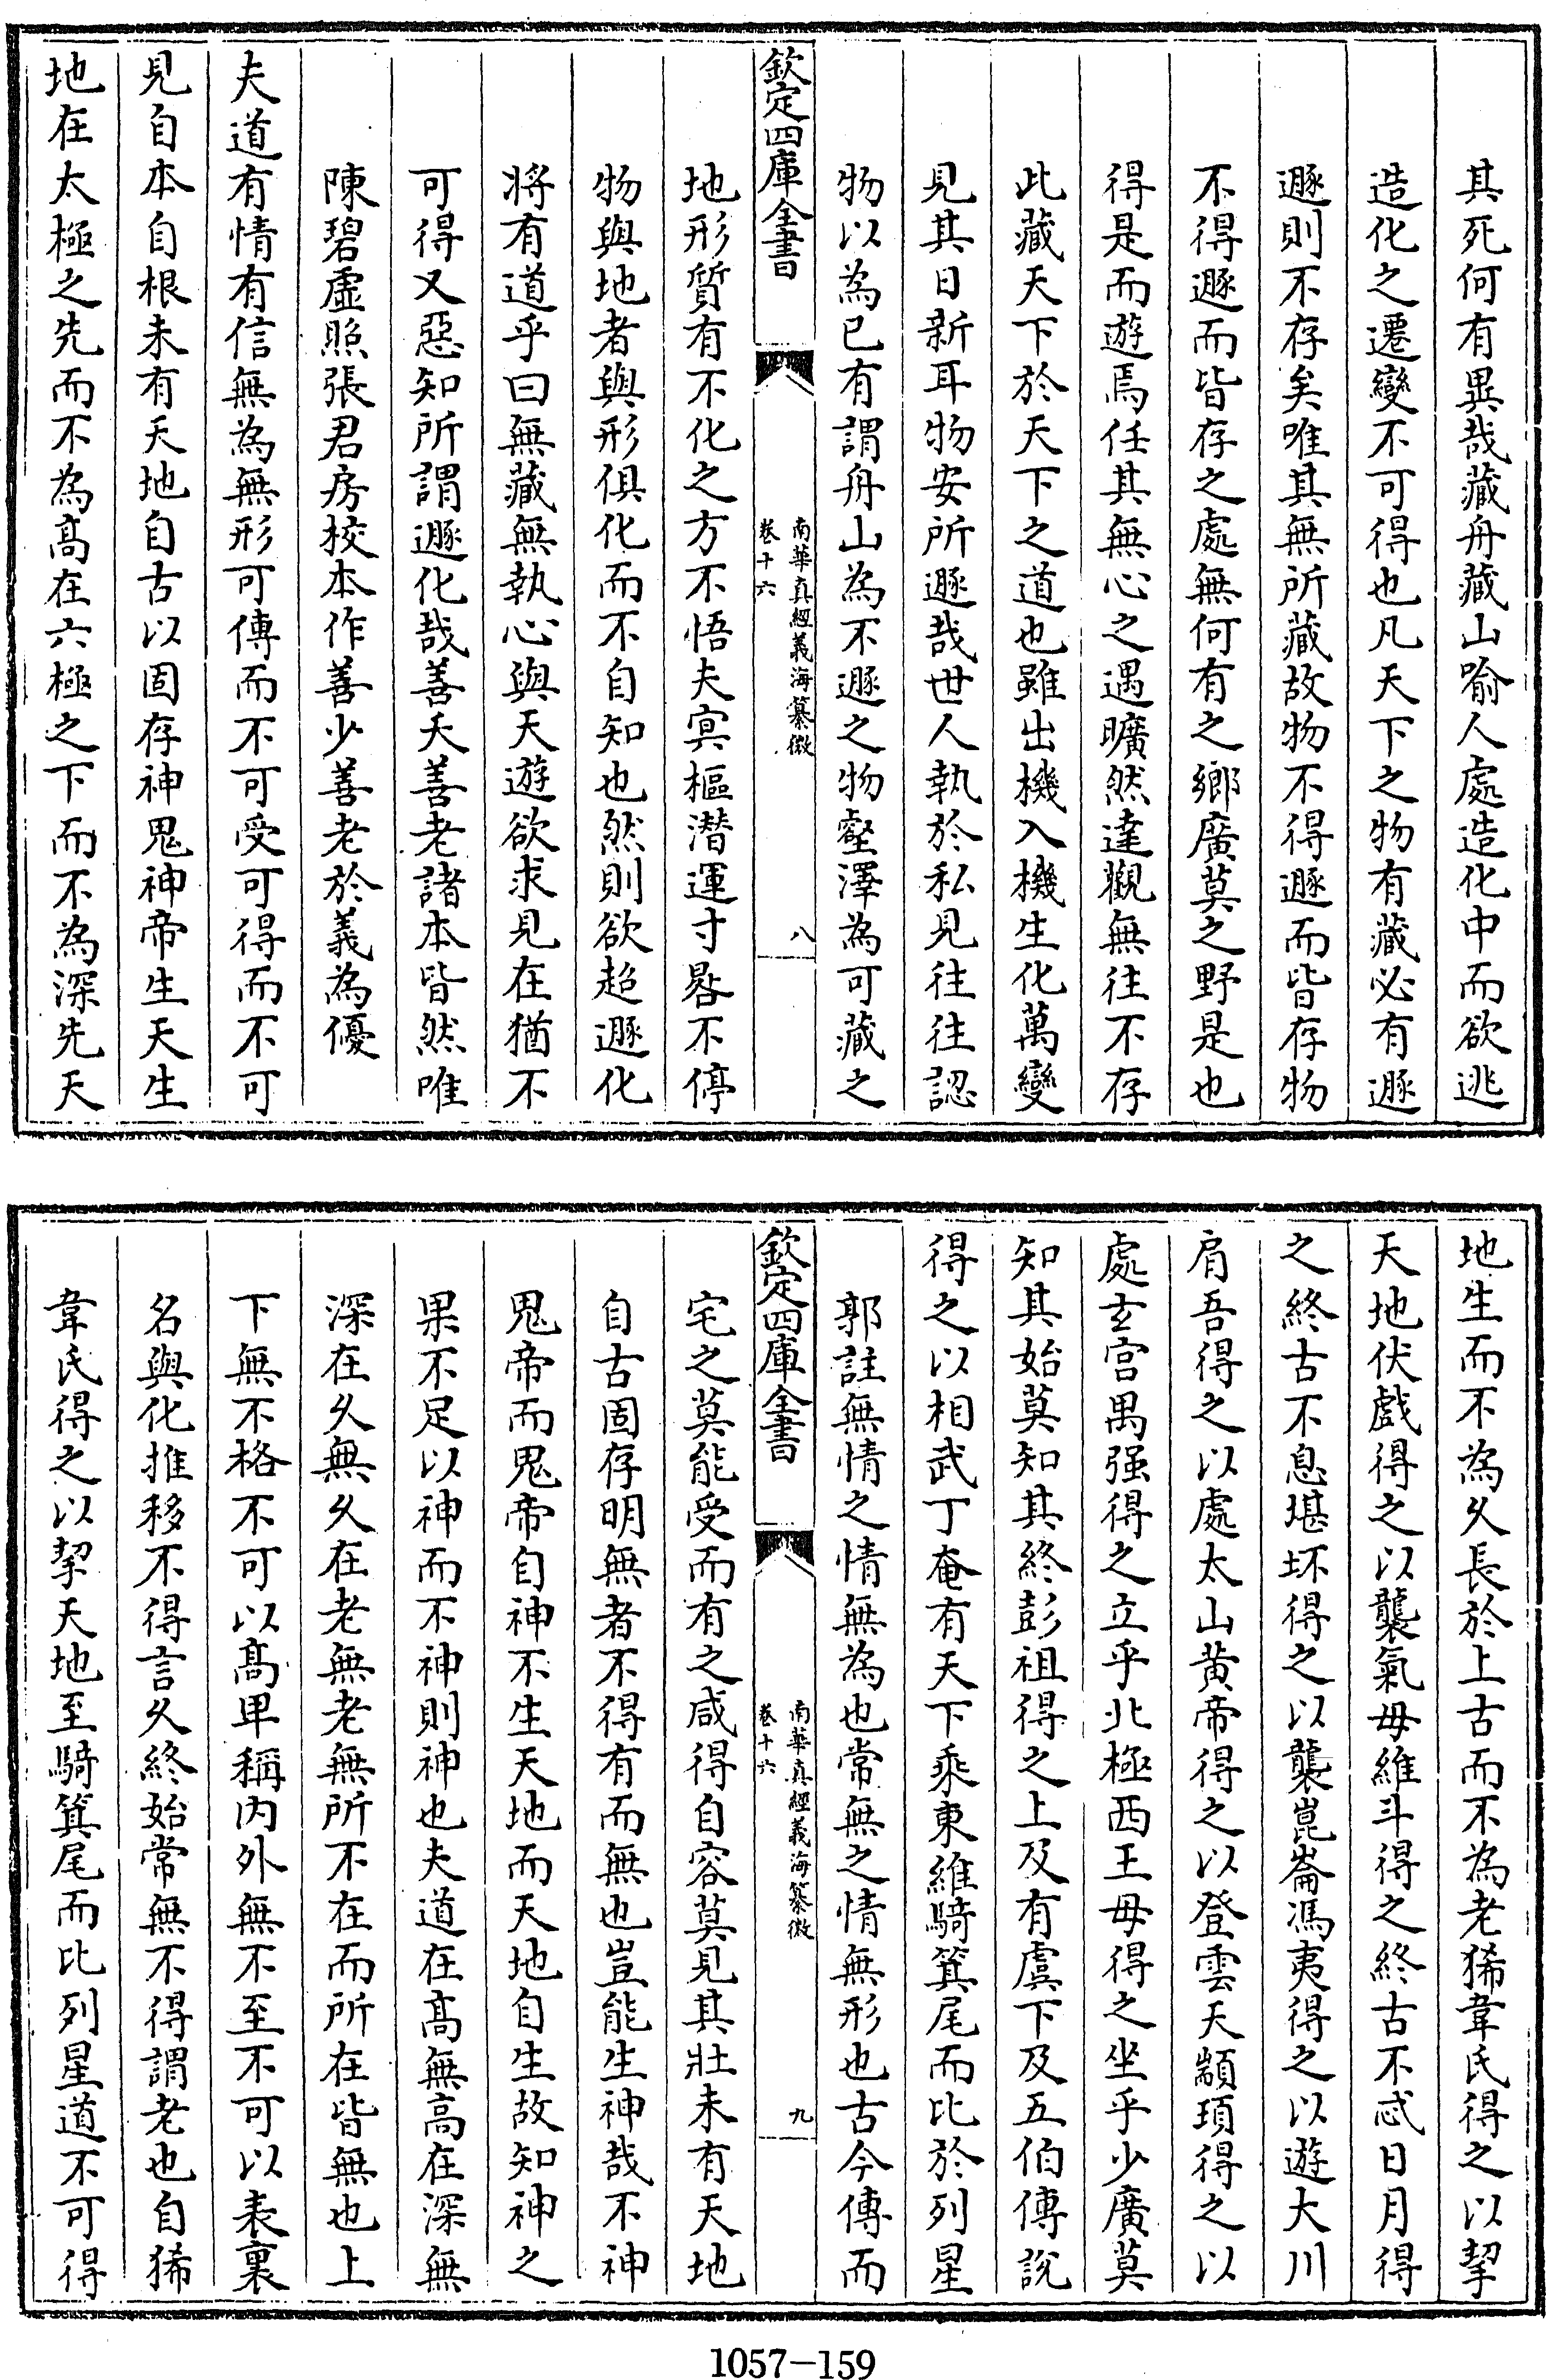 其死何有異哉藏舟藏山喻人處造化中而欲逃
造化之遷變不可得也凡天下之物有藏必有遯
遯則不存矣唯其無所藏故物不得遯而皆存物
不得遯而皆存之處無何有之鄉廣莫之野是也
得是而遊焉任其無心之遇曠然達觀無往不存
此藏天下於天下之道也雖出機入機生化萬變
見其日新耳物安所遯哉世人執於私見往往認
物以為已有謂舟山為不遯之物壑澤為可藏之
欽定四庫全書
南華真經義海纂微
卷十六
八
地形質有不化之方不悟夫冥樞潛運寸晷不停
物與地者與形俱化而不自知也然則欲超遯化
將有道乎曰無藏無執心與天遊欲求見在猶不
可得又惡知所謂遯化哉善夭善老諸本皆然唯
陳碧虛照張君房校本作善少善老於義為優
夫道有情有信無為無形可傳而不可受可得而不可
見自本自根未有天地自古以固存神鬼神帝生天生
地在太極之先而不為高在六極之下而不為深先天
地生而不為久長於上古而不為老狶韋氏得之以挈
天地伏戲得之以襲氣母維斗得之終古不忒日月得
之終古不息堪坏得之以襲崑崙馮夷得之以遊大川
肩吾得之以處太山黄帝得之以登雲天顓頊得之以
處玄宫禺强得之立乎北極西王母得之坐乎少廣莫
知其始莫知其終彭祖得之上及有虞下及五伯傅說
得之以相武丁奄有天下乘東維騎箕尾而比於列星
郭註無情之情無為也常無之情無形也古今傳而
欽定四庫全書
南華真經義海纂微
卷十六
九
宅之莫能受而有之咸得自容莫見其壯未有天地
自古固存明無者不得有而無也豈能生神哉不神
鬼帝而鬼帝自神不生天地而天地自生故知神之
果不足以神而不神則神也夫道在高無高在深無
深在久無久在老無老無所不在而所在皆無也上
下無不格不可以高卑稱内外無不至不可以表裏
名與化推移不得言久終始常無不得謂老也自狶
韋氏得之以挈天地至騎箕尾而比列星道不可得
1057-159